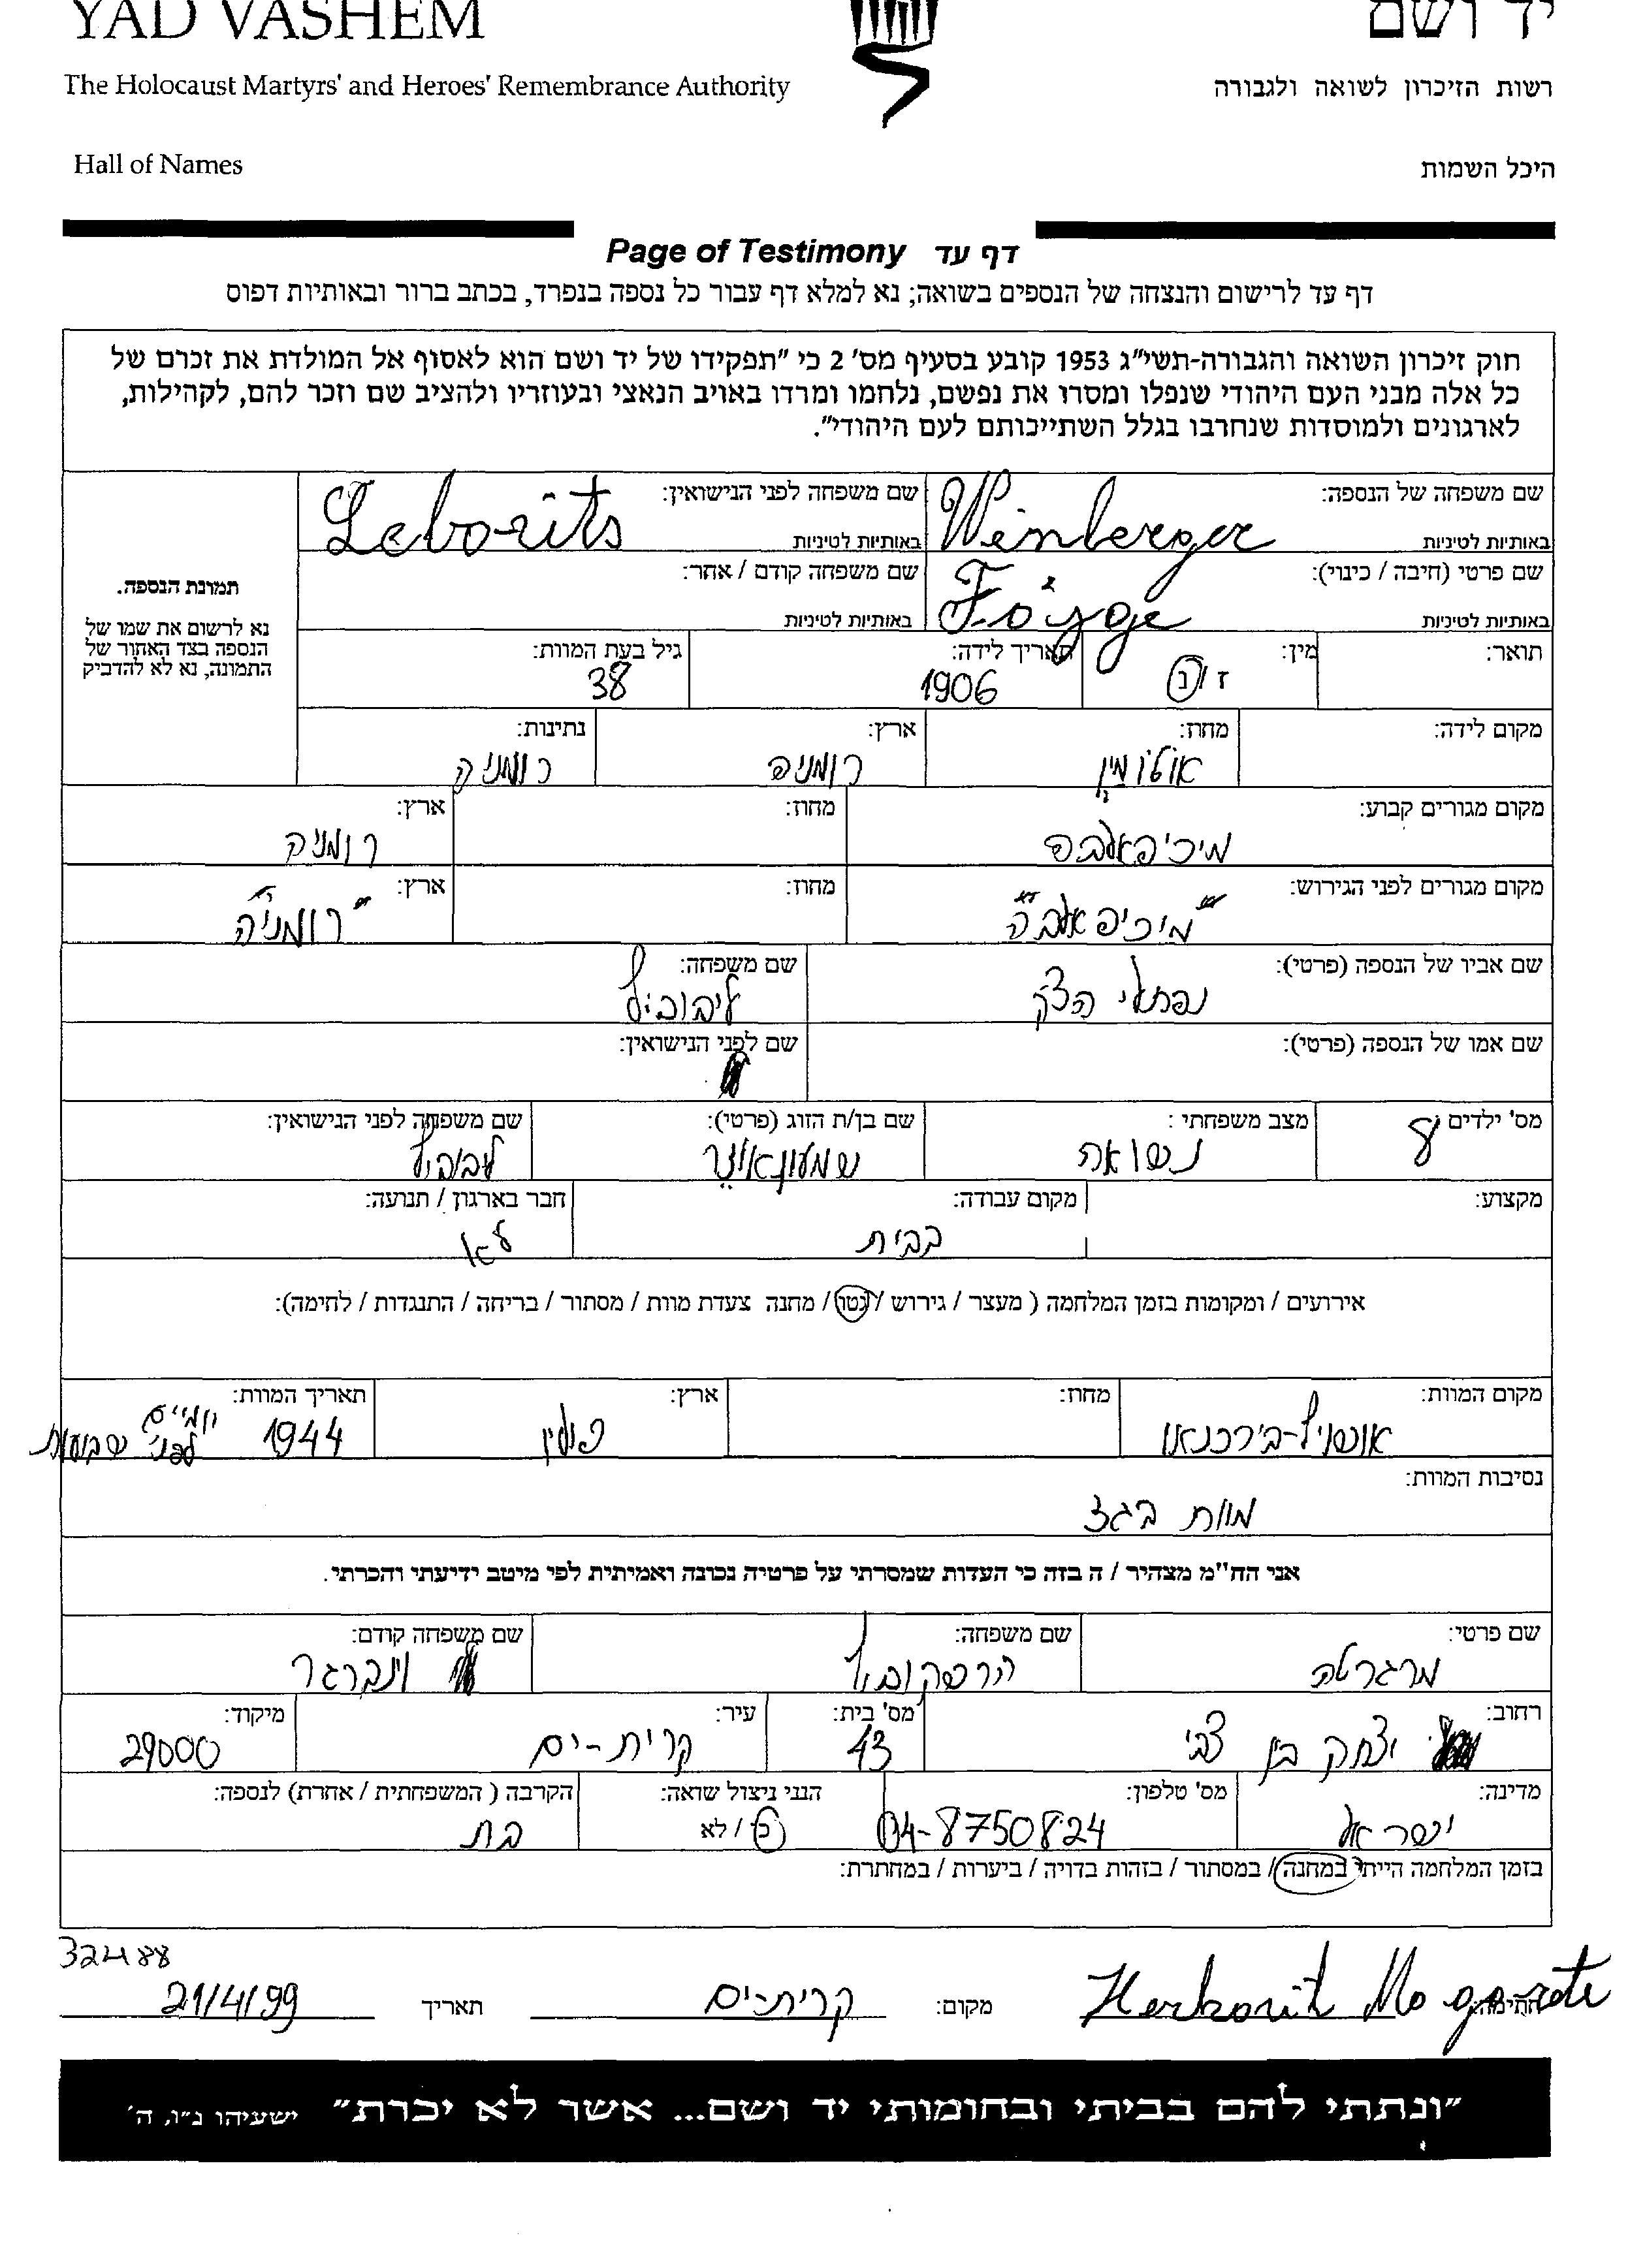 YAD VASHEM
יד ושם
The Holocaust Martyrs' and Heroes' Remembrance Authority
רשות הזיכרון לשואה ולגבורה
Hall of Names
היכל השמות
Page of Testimony דף עד
דף עד לרישום והנצחה של הנספים בשואה; נא למלא דף עבור כל נספה בנפרד, בכתב ברור ובאותיות דפוס
חוק זיכרון השואה והגבורה-תשי"ג 1953 קובע בסעיף מס' 2 כי "תפקידו של יד ושם הוא לאסוף אל המולדת את זכרם של
כל אלה מבני העם היהודי שנפלו ומסרו את נפשם, נלחמו ומרדו באויב הנאצי ובעוזריו ולהציב שם וזכר להם, לקהילות,
לארגונים ולמוסדות שנחרבו בגלל השתייכותם לעם היהודי".
שם משפחה של הנספה: Weinberger באותיות לטיניות
שם משפחה לפני הנישואין: Leborits באותיות לטיניות
שם פרטי (חיבה / כינוי): Fojge באותיות לטיניות
שם משפחה קודם / אחר: באותיות לטיניות
תמונת הנספה.
נא לרשום את שמו של
הנספה בצד האחור של
התמונה, נא לא להדביק
תואר: מין: ז / נ תאריך לידה: 1906 גיל בעת המוות: 38
מקום לידה: מחוז: ארץ: רומניה נתינות: רומניה
מקום מגורים קבוע: מיכיפאלבה מחוז: ארץ: רומניה
מקום מגורים לפני הגירוש: מיכיפאלבה מחוז: ארץ: רומניה
שם אביו של הנספה (פרטי): נפתלי הצק שם משפחה: ליבוביץ
שם אמו של הנספה (פרטי): שם לפני הנישואין:
מס' ילדים 8 מצב משפחתי: נשואה שם בן/ת הזוג (פרטי): שם משפחה לפני הנישואין: לבוביץ
מקצוע: מקום עבודה: בבית חבר בארגון / תנועה: לא
אירועים / ומקומות בזמן המלחמה ( מעצר / גירוש / גטו / מחנה צעדת מוות / מסתור / בריחה / התנגדות / לחימה):
מקום המוות: אושוויץ-בירכנאו מחוז: ארץ: פולין תאריך המוות: 1944 יומיים לפני שבועות
נסיבות המוות: מוות בגז
אני הח"מ מצהיר / ה בזה כי העדות שמסרתי על פרטיה נכונה ואמיתית לפי מיטב ידיעתי והכרתי.
שם פרטי: מרגרטה שם משפחה: הרשקוביץ שם משפחה קודם: וינברגר
רחוב: יצחק בן צבי מס' בית: 43 עיר: קרית-ים מיקוד: 29000
מדינה: ישראל מס' טלפון: 04-8750824 הנני ניצול שואה: כ / לא הקרבה ( המשפחתית / אחרת) לנספה: בת
בזמן המלחמה הייתי במחנה / במסתור / בזהות בדויה / ביערות / במחתרת:
32488
חתימה: Herkovit Magarete מקום: קרית-ים תאריך 21/4/99
"ונתתי להם בביתי ובחומותי יד ושם... אשר לא יכרת" ישעיהו נ"ו, ה'